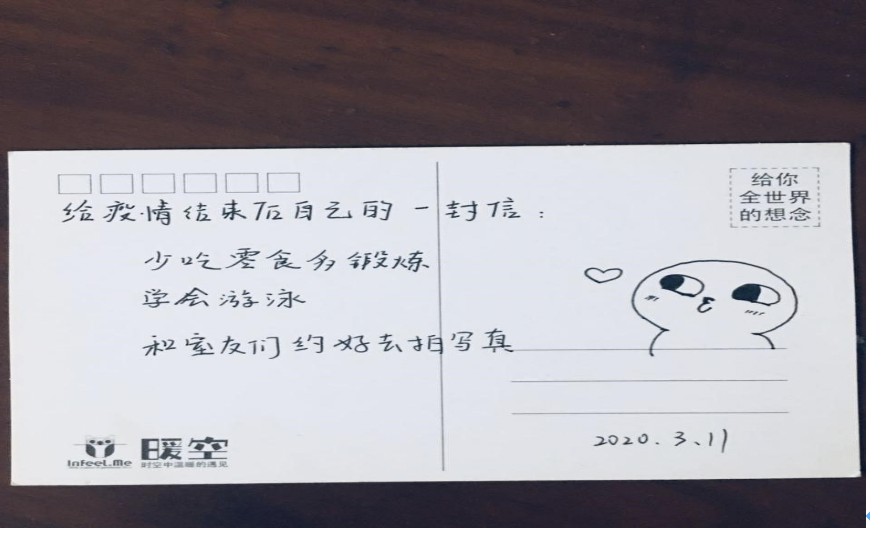 给你
全世界
的想念
给疫情结束后自己的一封信：
少吃零食多锻炼
学会游泳
和室友们约好去拍写真
2020.3.11
InFeeL.Me
暖空
时空中温暖的遇见